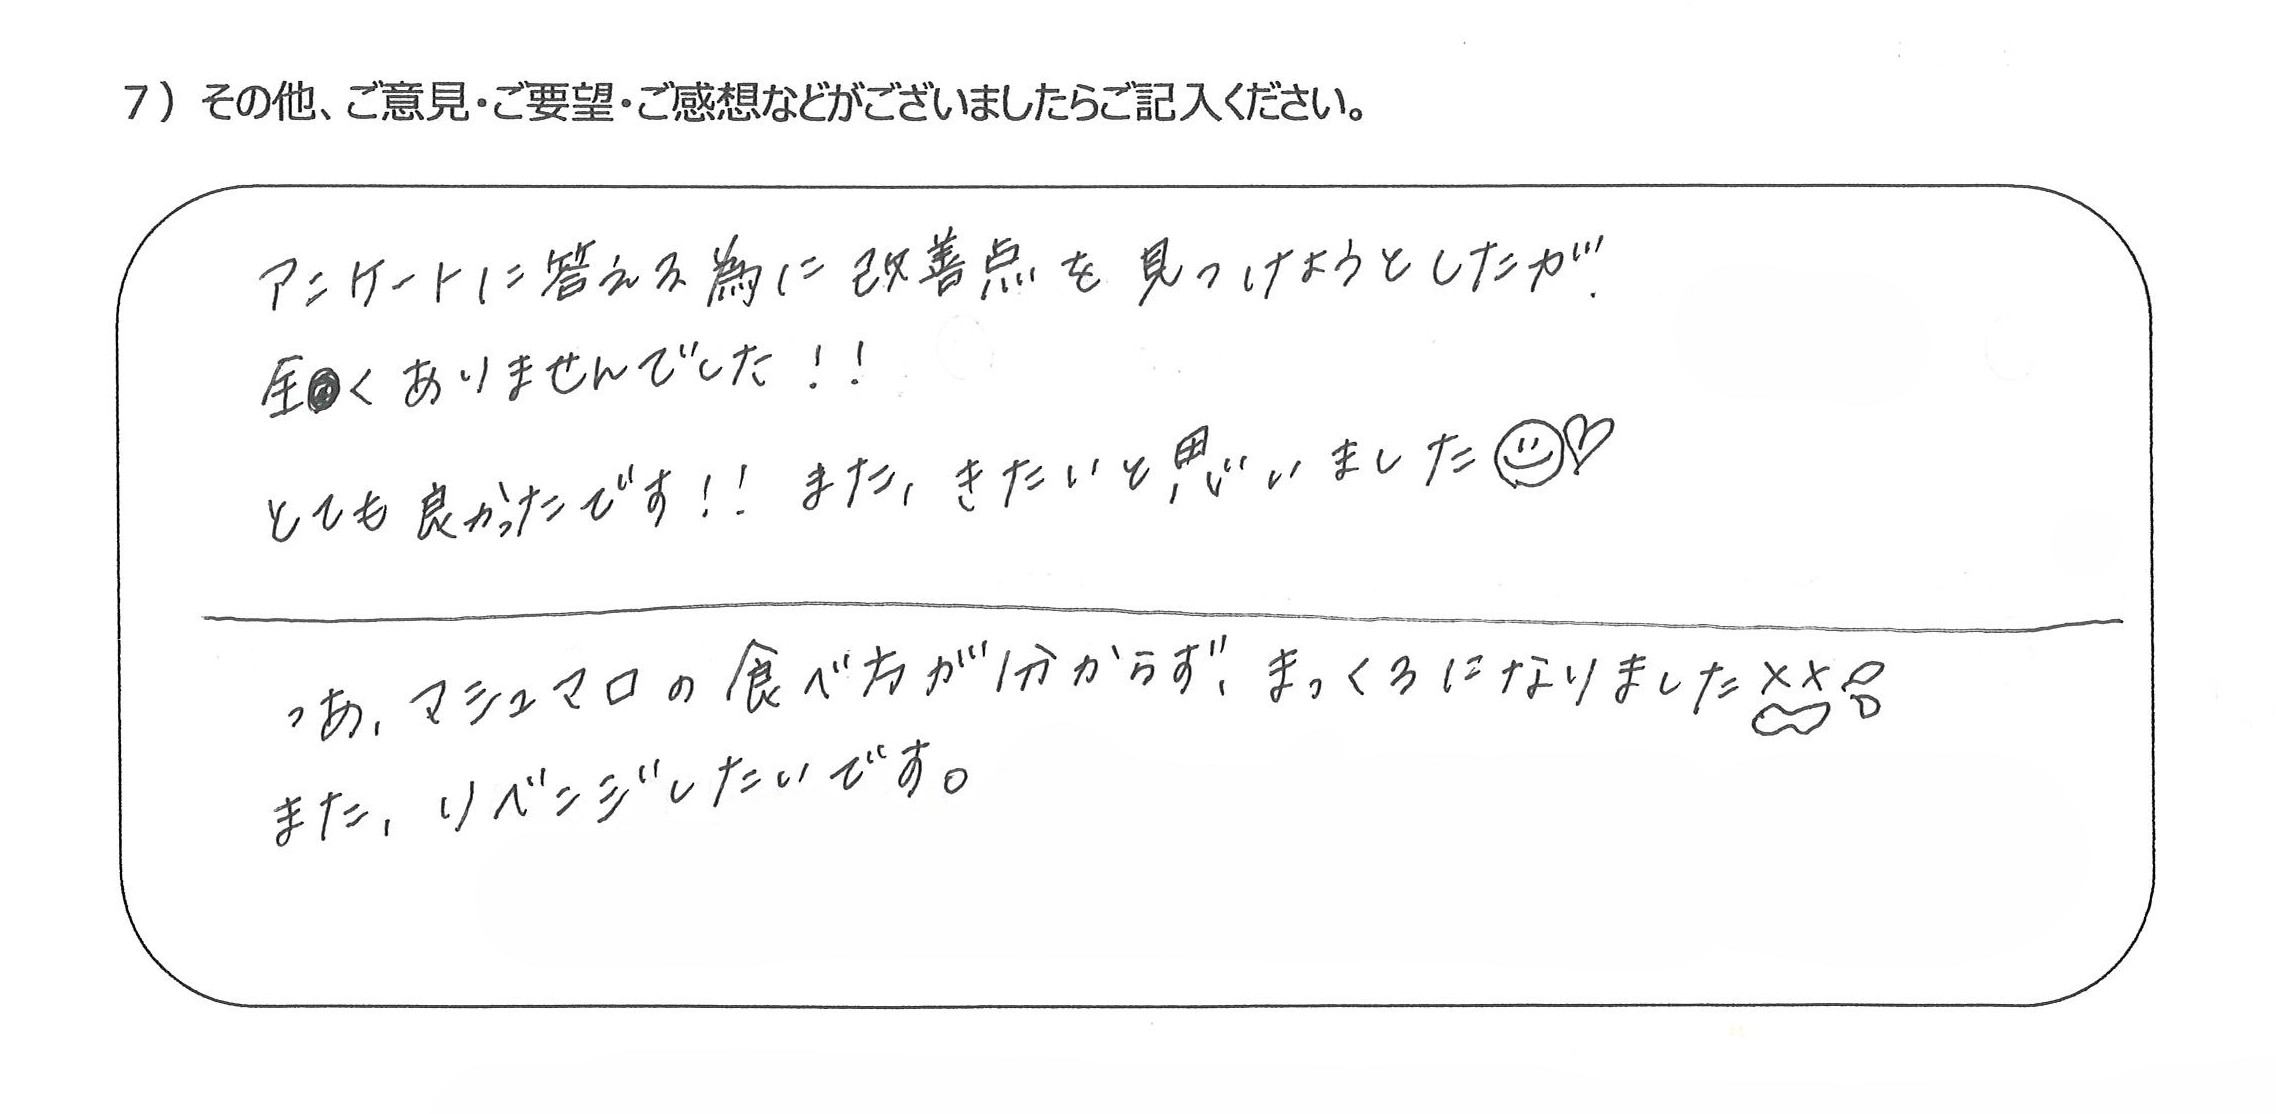 7）その他、ご意見・ご要望・ご感想などがございましたらご記入ください。
アンケートに答える為に改善点を見つけようとしたが、
全くありませんでした！！
とても良かったです！！また、きたいと思いました
っあ、マシュマロの食べ方が分からず、まっくろになりました
また、リベンジしたいです。